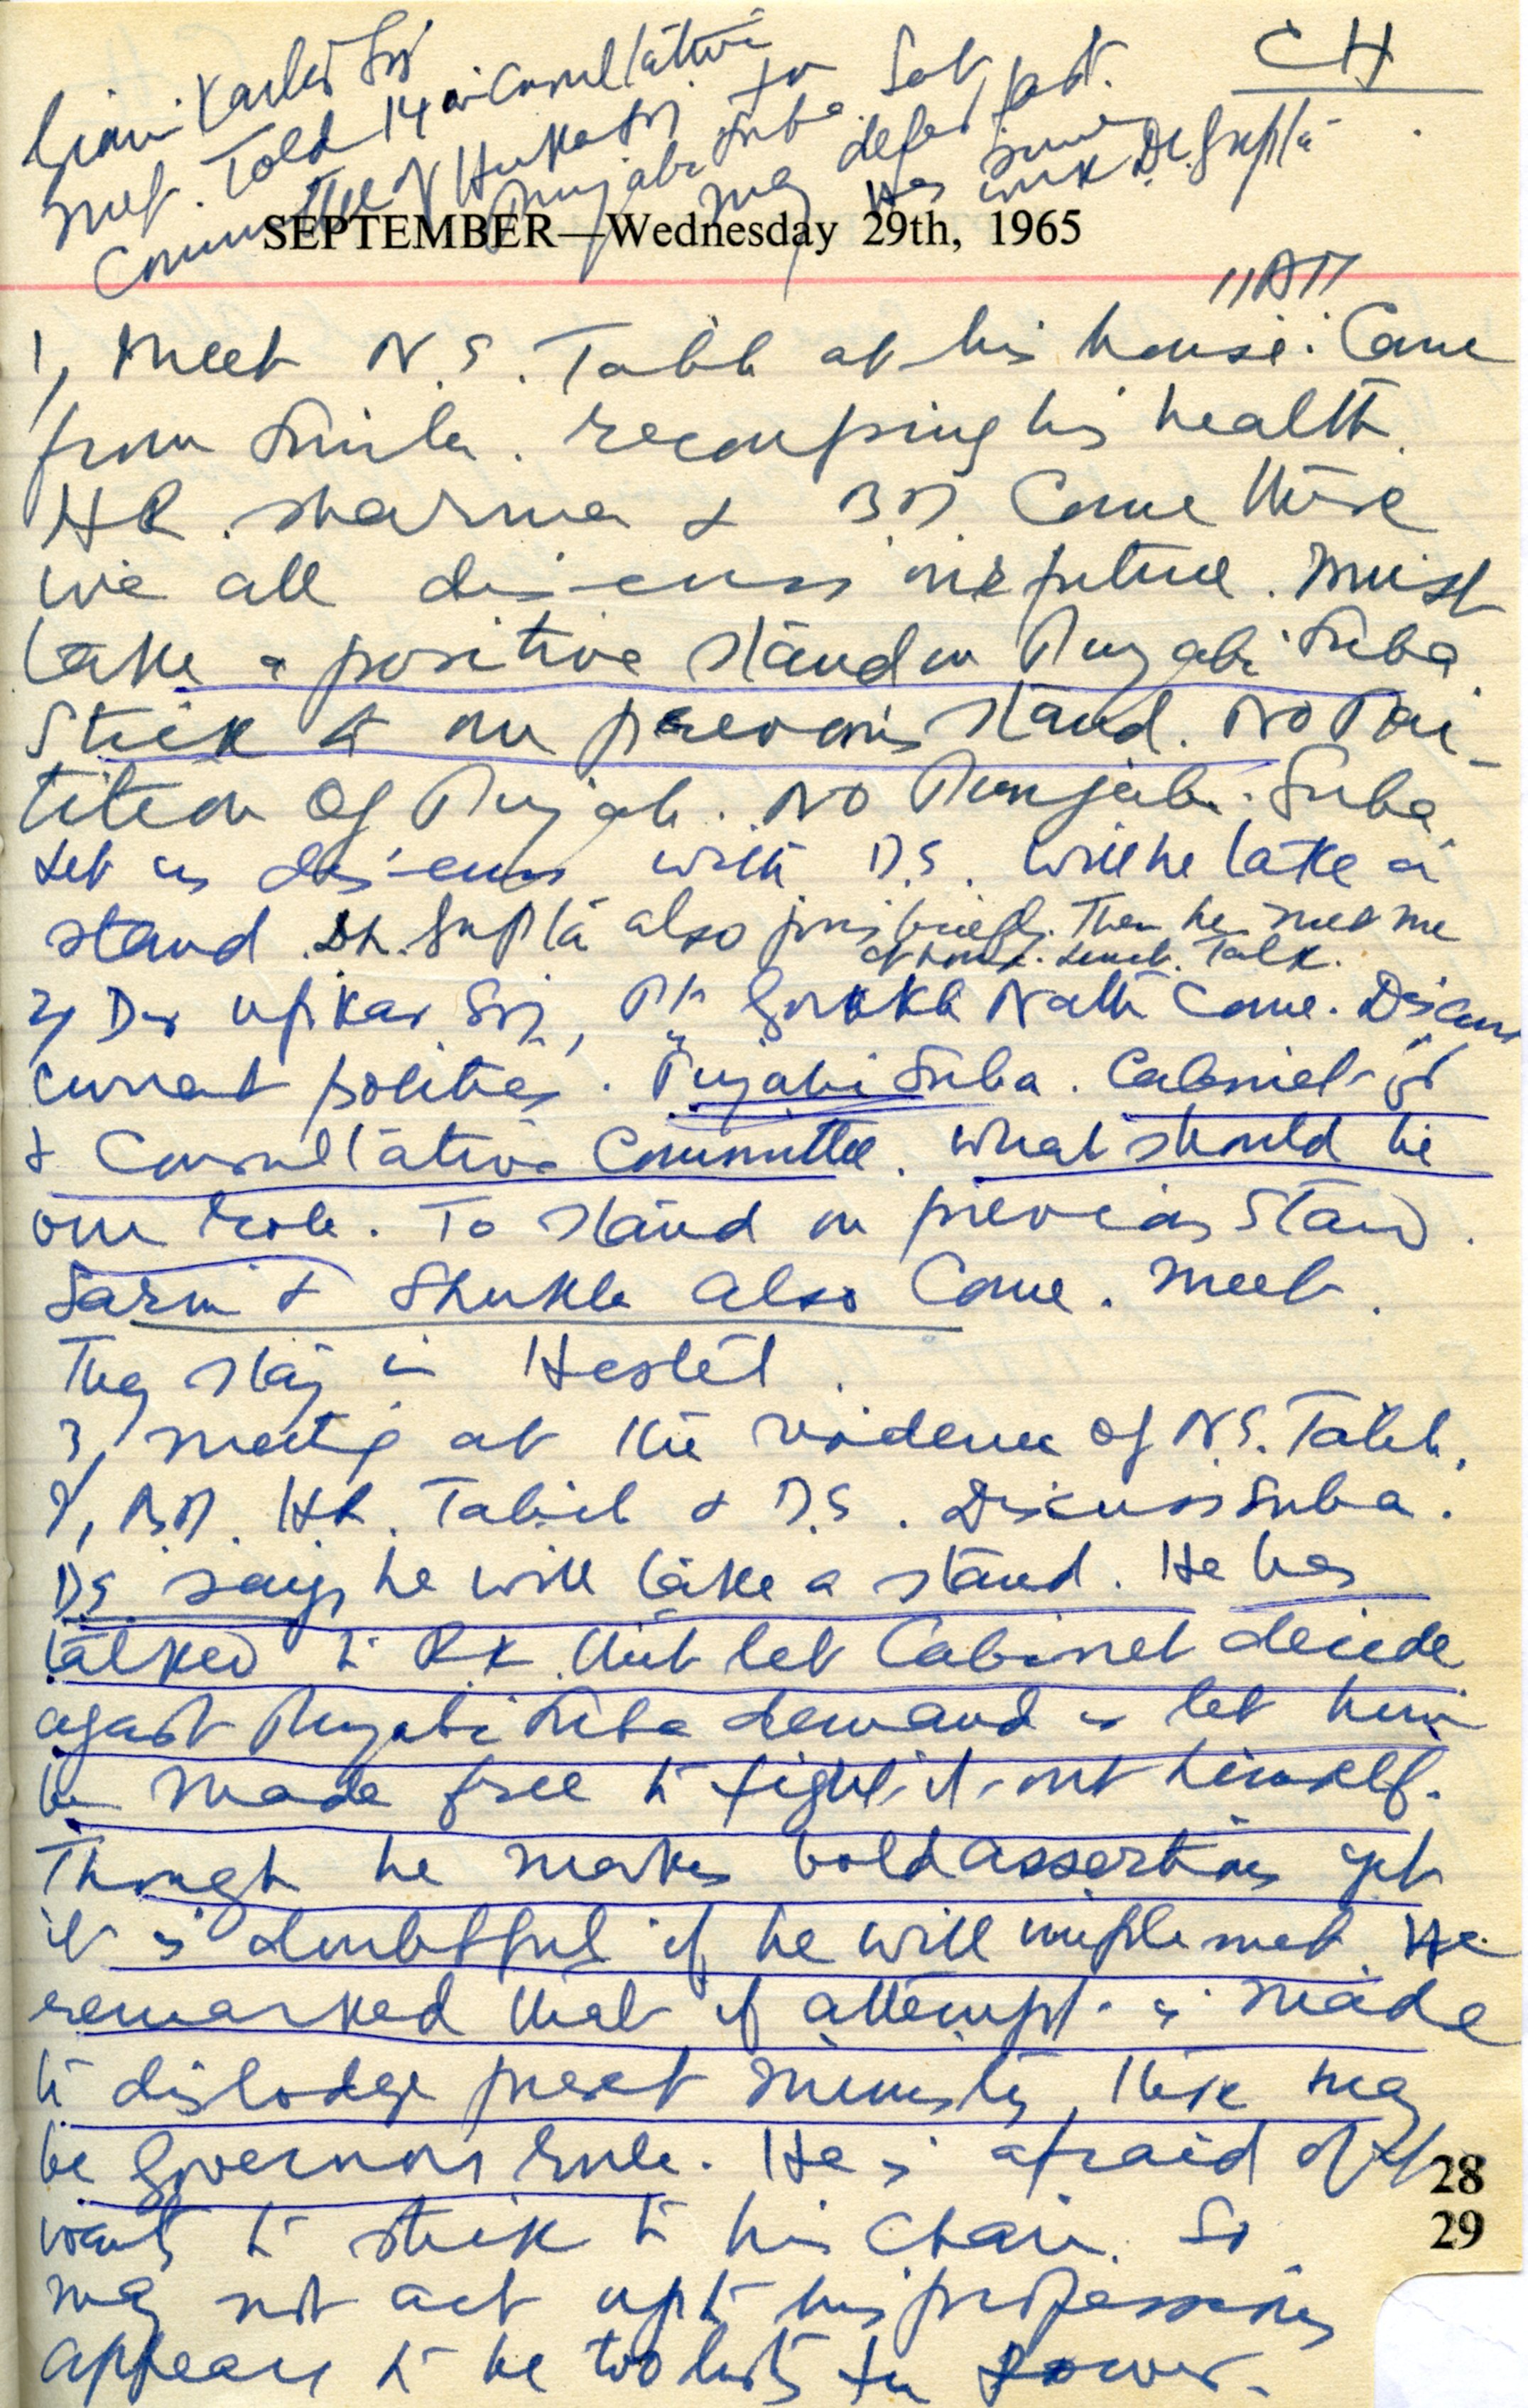 CH
Giani Kartar Sgh
met. Told 14 in Consultative
Committee of Hukam Sgh for
Punjabi Suba. Sat, pat.
may defer some
Has work Dr. Gupta
SEPTEMBER—Wednesday 29th, 1965
"A"
1, Meet N.S. Talib at his house. Came
from Simla. recouping his health.
HR. Sharma & come there
we all discuss our future. Must
take a positive stand on Punjabi Suba.
Stick to our previous stand. No Par-
tition of Punjab. No Punjabi Suba.
Let us discuss with D.S. Will he take a
stand. Dr. Gupta also joins briefly. Then he met me
at home. Lunch. Talk.
2, Dr Upkar Sgh, Pt. Gorakh Nath come. Discuss
current politics. Punjabi Suba. Cabinet
& Consultative Committee. What should be
our role. To stand on previous stand.
Sarin & Shukla also come. Meet.
They stay in Hostel.
3, Meeting at the residence of N.S. Talib.
I, HR. Talib & D.S. Discuss Suba.
D.S. says he will take a stand. He has
talked to RK. that let Cabinet decide
against Punjabi Suba demand or let him
be made free to fight it out himself.
Though he makes bold assertions yet
it is doubtful if he will implement. He
remarked that if attempt is made
to dislodge present ministry, there may
be Governors rule. He is afraid of it
28
29
wants to stick to his chair. So
may not act upto his professions
appears to be too hasty for power.